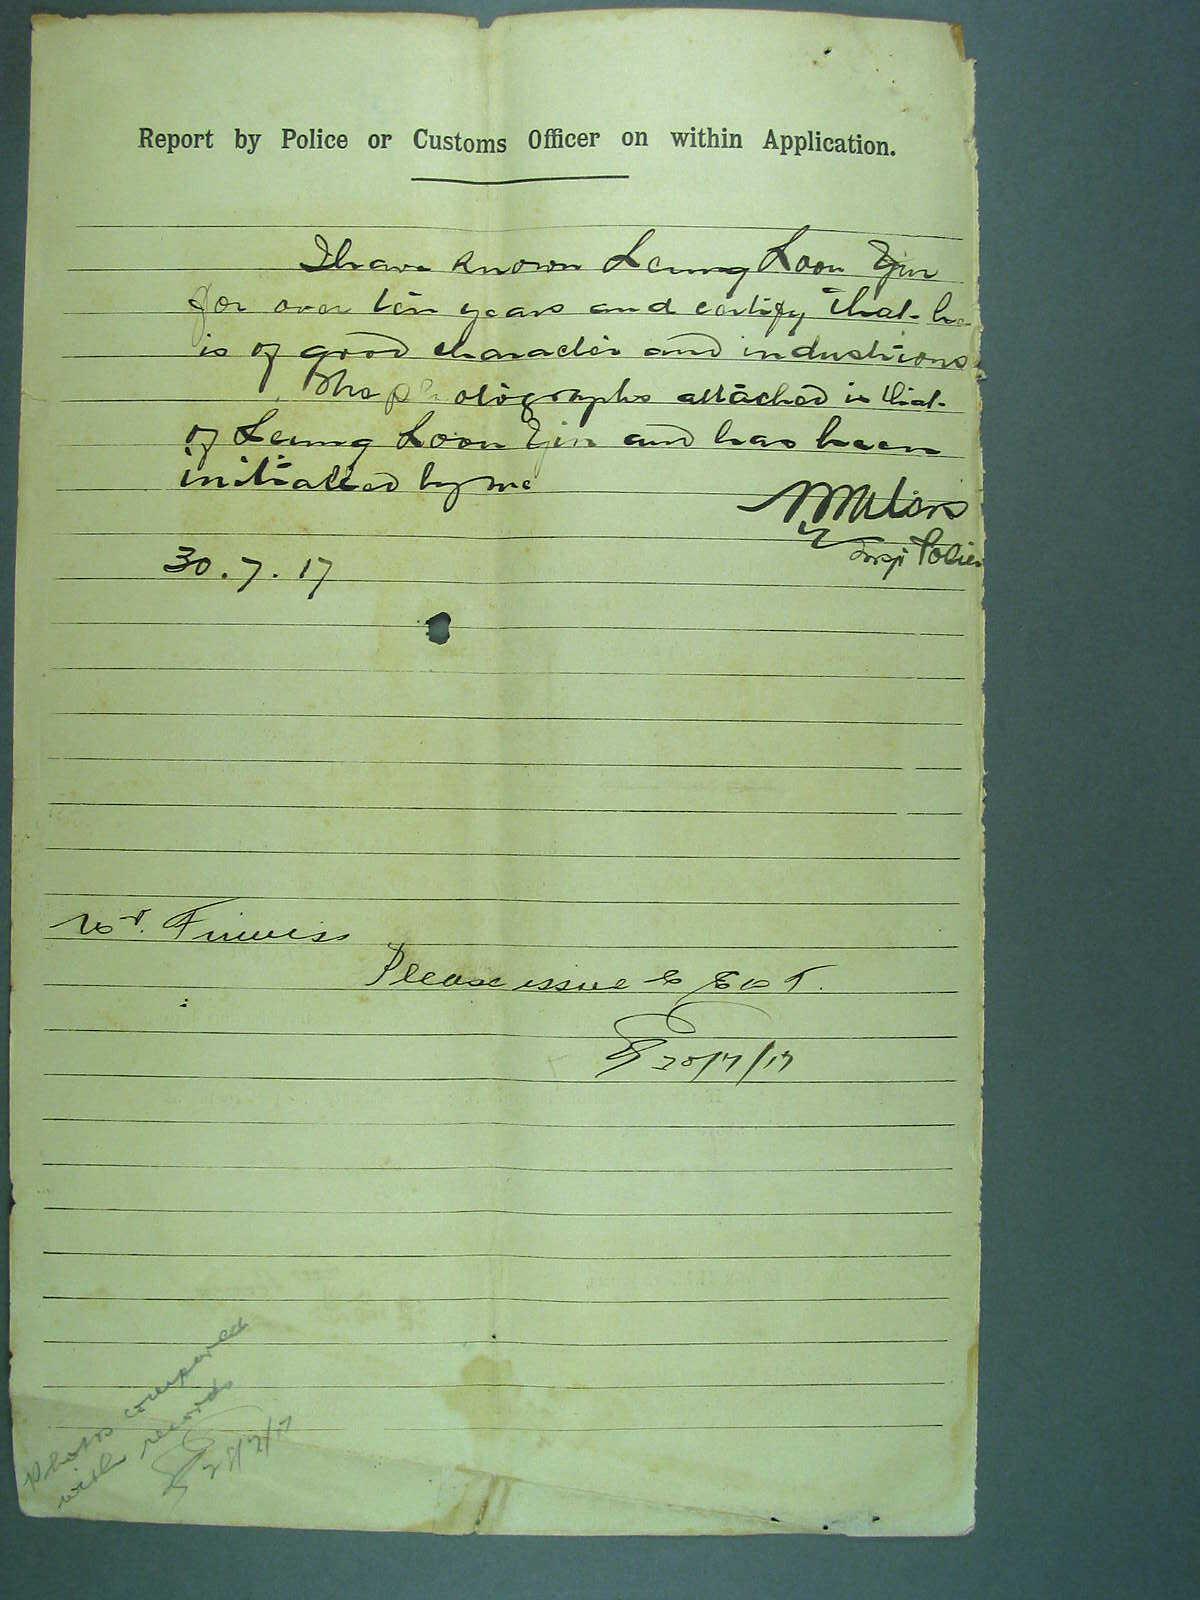 Report by Police or Customs Officer on within Application.
I have known Leung Loon Yin
for over ten years and certify that he
is of good character and industrious
The photographs attached is that
of Leung Loon Yin and has been
initialled by me
Waters
Insp Police
30.7.17
Mr.
Please issue C E D T.
30/7/17
Photos compared
with records